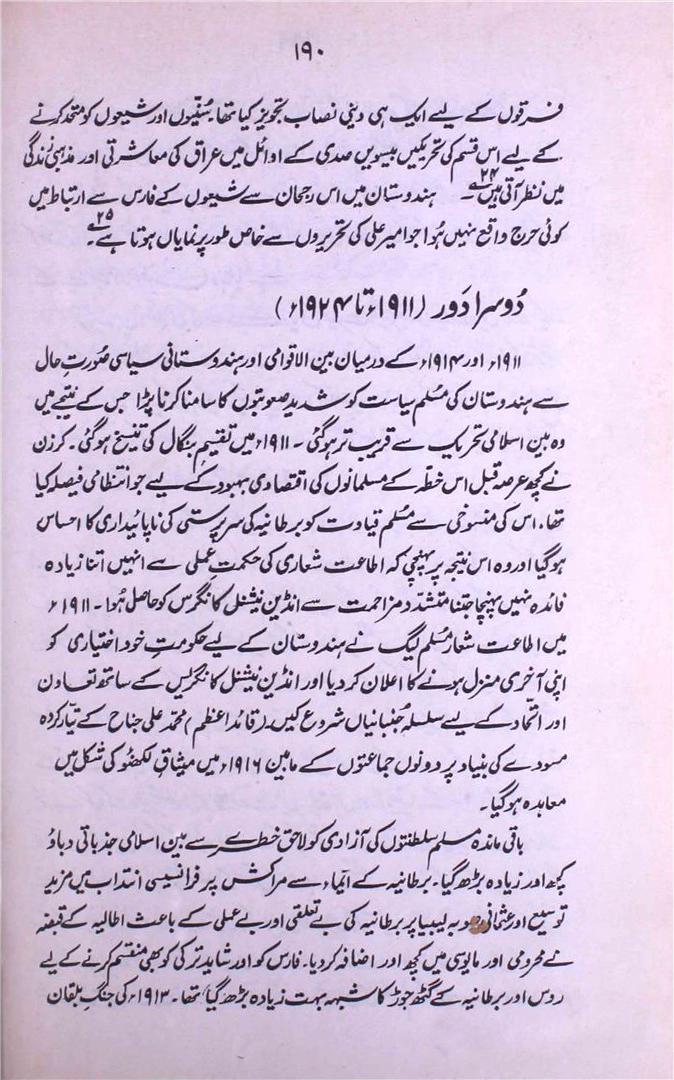 ۱۹۰
فرقوں کے لیے ایک ہی دینی نصاب تجویز کیا تھا، سُنّیوں اور شیعوں کو متحد کرنے
کے لیے اس قسم کی تحریکیں بیسویں صدی کے اوائل میں عراق کی معاشرتی اور مذہبی زندگی
میں نظر آتی ہیں۲۴؎۔ ہندوستان میں اس رجحان سے شیعوں کے فارس سے ارتباط میں
کوئی حرج واقع نہیں ہُوا جو امیر علی کی تحریروں سے خاص طور پر نمایاں ہوتا ہے۲۵؎۔
دُوسرا دَور (۱۹۱۱ء تا ۱۹۲۴ء)
۱۹۱۱ء اور ۱۹۱۴ء کے درمیان بین الاقوامی اور ہندوستانی سیاسی صُورتِ حال
سے ہندوستان کی مُسلم سیاست کو شدید صعوبتوں کا سامنا کرنا پڑا جس کے نتیجے میں
وہ بین اسلامی تحریک سے قریب تر ہو گئی۔ ۱۹۱۱ء میں تقسیمِ بنگال کی تنسیخ ہو گئی۔ کرزن
نے کچھ عرصہ قبل اس خطّہ کے مسلمانوں کی اقتصادی بہبود کے لیے جو انتظامی فیصلہ کیا
تھا، اس کی منسوخی سے مُسلم قیادت کو برطانیہ کی سرپرستی کی ناپائیداری کا احساس
ہو گیا اور وہ اس نتیجہ پر پہنچی کہ اطاعت شعاری کی حکمتِ عملی سے انہیں اتنا زیادہ
فائدہ نہیں پہنچا جتنا متشدّد مزاحمت سے انڈین نیشنل کانگرس کو حاصل ہُوا۔ ۱۹۱۱ء
میں اطاعت شعار مُسلم لیگ نے ہندوستان کے لیے حکومتِ خود اختیاری کو
اپنی آخری منزل ہونے کا اعلان کر دیا اور انڈین نیشنل کانگریس کے ساتھ تعاون
اور اتّحاد کے لیے سلسلہ جُنبانیاں شروع کیں۔ (قائداعظم) محمّد علی جناح کے تیّار کردہ
مسودے کی بنیاد پر دونوں جماعتوں کے مابین ۱۹۱۶ء میں میثاقِ لکھنؤ کی شکل میں
معاہدہ ہو گیا۔
باقی ماندہ مسلم سلطنتوں کی آزادی کو لاحق خطرے سے بین اسلامی جذباتی دباؤ
کچھ اور زیادہ بڑھ گیا۔ برطانیہ کے ایماء سے مراکش پر فرانسیسی انتداب میں مزید
توسیع اور عثمانی صوبہ لیبیا پر برطانیہ کی بے تعلقی اور بے عملی کے باعث اطالیہ کے قبضہ
نے محرومی اور مایوسی میں کچھ اور اضافہ کر دیا۔ فارس کو اور شاید ترکی کو بھی منقسم کرنے کے لیے
روس اور برطانیہ کے گٹھ جوڑ کا شبہہ بہت زیادہ بڑھ گیا تھا۔ ۱۹۱۳ء کی جنگِ بلقان